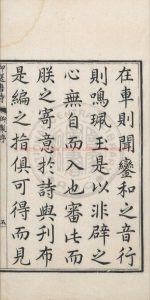 在車則聞鸞和之音行
則鳴珮玉是以非辟之
心無自而入也審此而
朕之寄意於詩與刋布
是編之指俱可得而見